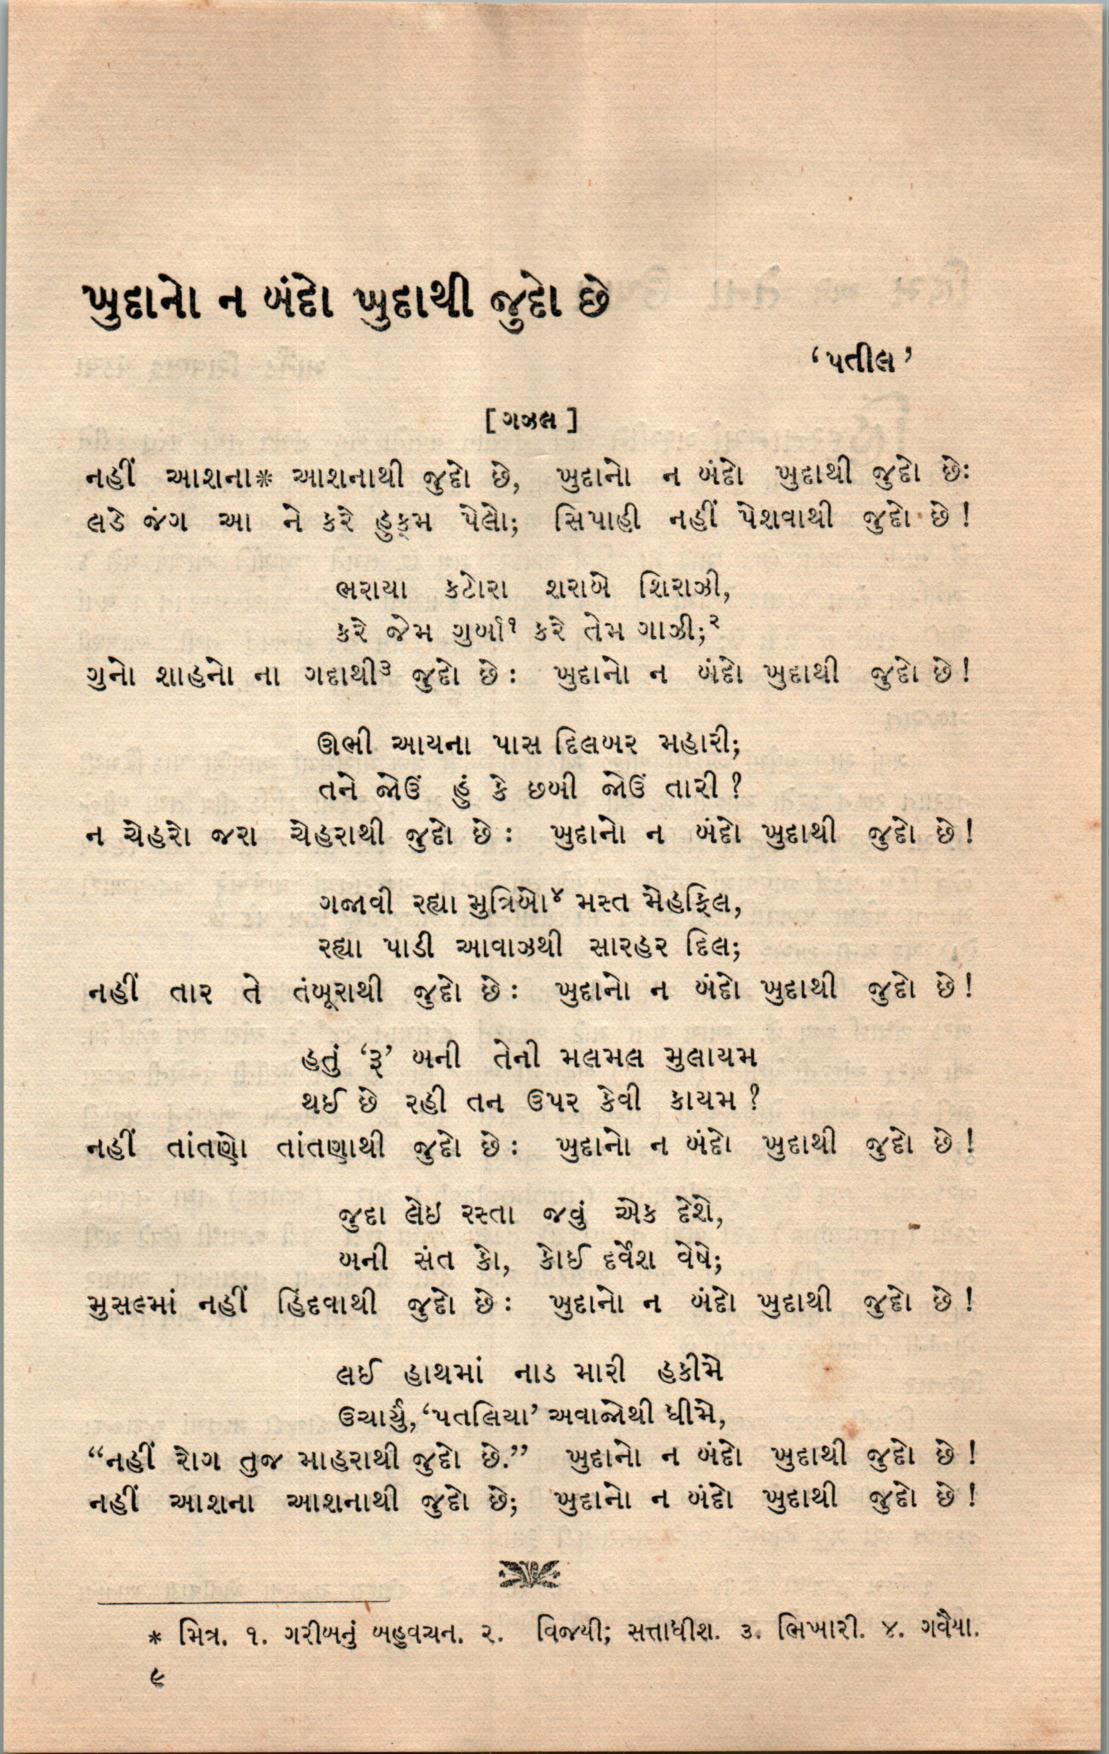 ખુદાનો ન બંદો ખુદાથી જુદો છે
‘પતીલ’
[ગઝલ]
નહીં આશના* આશનાથી જુદો છે, ખુદાનો ન બંદો ખુદાથી જુદો છેઃ
લડે જંગ આ ને કરે હુક્મ પેલો; સિપાહી નહીં પેશવાથી જુદો છે!
ભરાયા કટોરા શરાબે શિરાઝી,
કરે જેમ ગુર્બા૧ કરે તેમ ગાઝી;૨
ગુનો શાહનો ના ગદાથી૩ જુદો છેઃ ખુદાનો ન બંદો ખુદાથી જુદો છે!
ઊભી આયના પાસ દિલબર મહારી;
તને જોઉં હું કે છબી જોઉં તારી?
ન ચેહરો જરા ચેહરાથી જુદો છેઃ ખુદાનો ન બંદો ખુદાથી જુદો છે!
ગજાવી રહ્યા મુત્રિબો૪ મસ્ત મેહફિલ,
રહ્યા પાડી આવાઝથી સારહર દિલ;
નહીં તાર તે તંબૂરાથી જુદો છેઃ ખુદાનો ન બંદો ખુદાથી જુદો છે!
હતું ‘રૂ’ બની તેની મલમલ મુલાયમ
થઈ છે રહી તન ઉપર કેવી કાયમ?
નહીં તાંતણો તાંતણાથી જુદો છેઃ ખુદાનો ન બંદો ખુદાથી જુદો છે!
જુદા લેઇ રસ્તા જવું એક દેશે,
બની સંત કો, કોઈ દર્વેશ વેષે;
મુસલ્માં નહીં હિંદવાથી જુદો છેઃ ખુદાનો ન બંદો ખુદાથી જુદો છે!
લઈ હાથમાં નાડ મારી હકીમે
ઉચાર્યું, ‘પતલિયા’ અવાજોથી ધીમે,
“નહીં રોગ તુજ માહરાથી જુદો છે.” ખુદાનો ન બંદો ખુદાથી જુદો છે!
નહીં આશના આશનાથી જુદો છે; ખુદાનો ન બંદો ખુદાથી જુદો છે!
* મિત્ર. ૧. ગરીબનું બહુવચન. ૨. વિજયી; સત્તાધીશ. ૩. ભિખારી. ૪. ગવૈયા.
૯